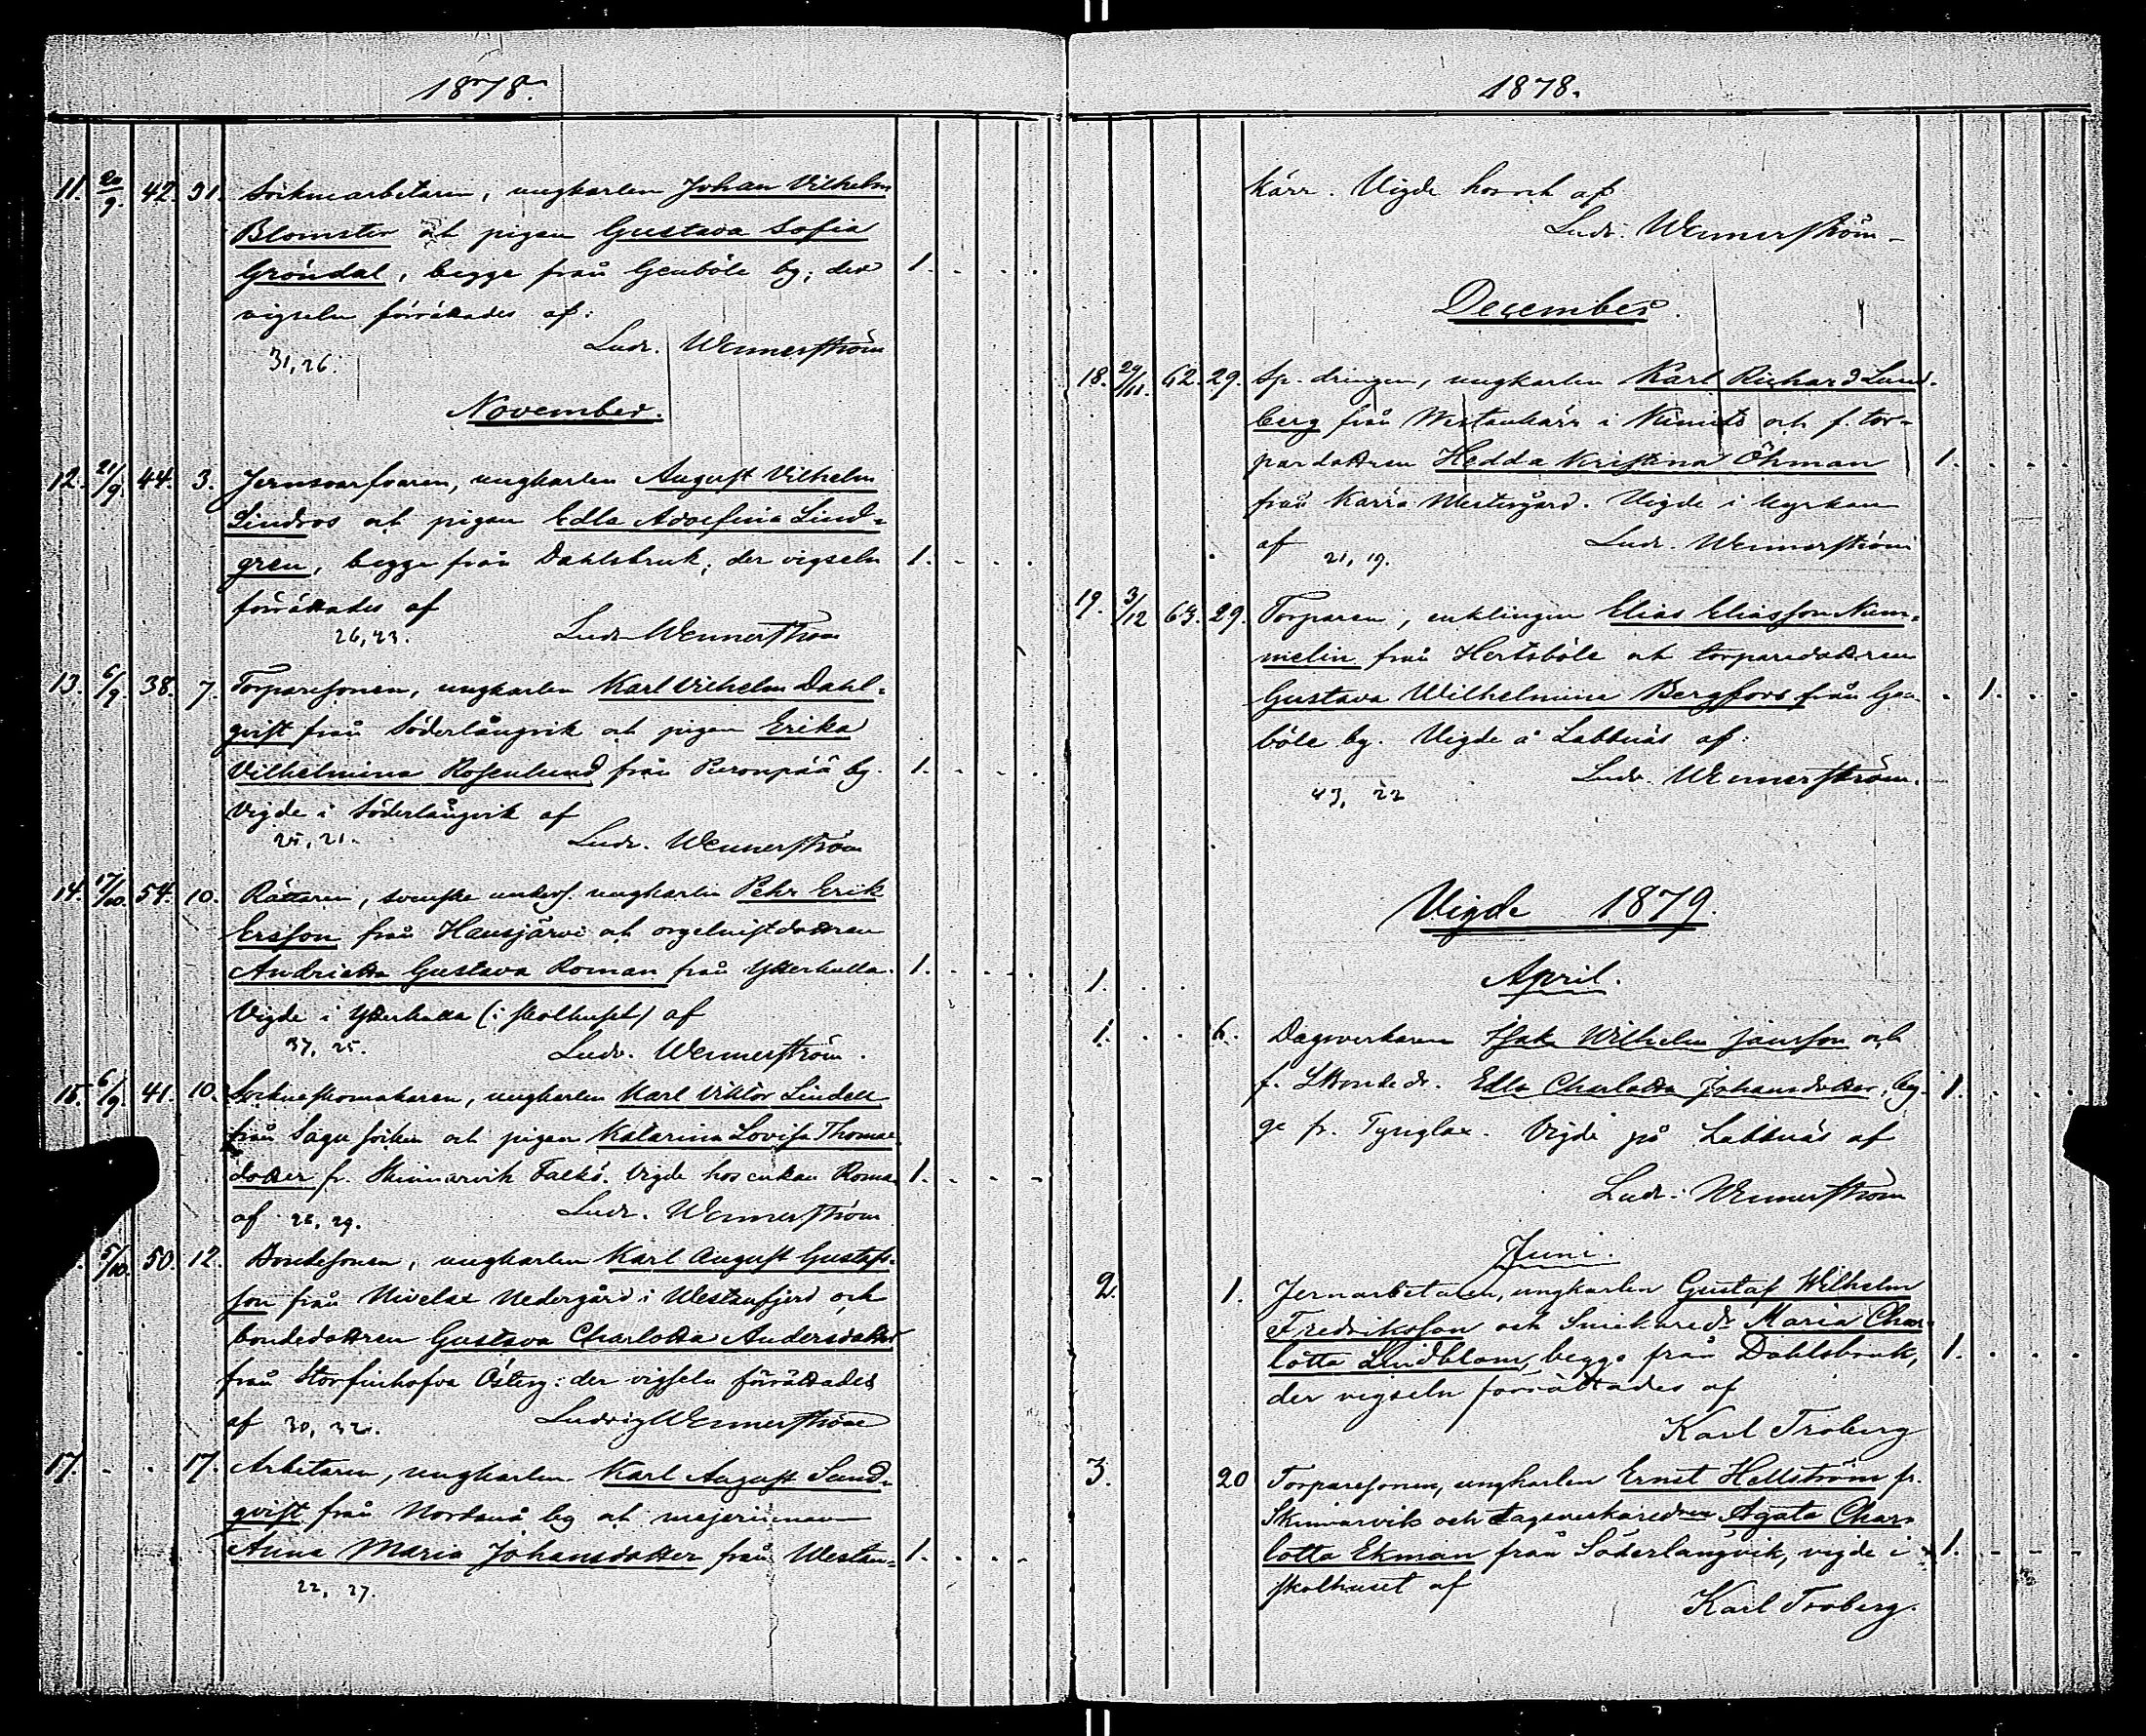 1878.
11. 20/9. 42. 31. Sockenarbetaren, ungkarlen Johan Vilhelm
Blomster och pigan Gustava Sofia
Gröndal, begge från Genböle by; der 1.
vigseln förrättades af:
31, 26. Ludv. Wennerström
November.
12. 21/9. 44. 3. Jernsvarfvaren, ungkarlen August Vilhelm
Lindros och pigan Edla Adolfina Lind-
gren, begge från Dahlsbruk; der vigseln 1.
förrättades af
26, 23. Ludv Wennerström
13. 6/9. 38. 7. Torparesonen, ungkarlen Karl Vilhelm Dahl-
qvist från Söderlångvik och pigan Erika
Vilhelmina Rosenlund från Peronpää by. 1.
Vigde i Söderlångvik af
25, 21. Ludv. Wennerström
14. 17/10. 54. 10. Rättaren, svenske unders. ungkarlen Pehr Erik
Ersson från Hausjärvi och orgelnistdottren
Andrietta Gustava Roman från Ytterkulla. 1.
Vigde i Ytterkulla (i skolhuset) af
37, 25. Ludv. Wennerström.
15. 6/9. 41. 10. Sockneskomakaren, ungkarlen Karl Viktor Lindell
från Sagu socken och pigan Katarina Lovisa Thomas-
dotter fr. Skinnarvik Falkö. Vigde hos enkan Roman 1.
af 22, 29. Ludv. Wennerström
5/10. 50. 12. Bondesonen, ungkarlen Karl August Gustafs-
son från Nivelax Nedergård i Westanfjerd och
bondedottren Gustava Charlotta Andersdotter
från Storfinhofva Österg: der vigseln förrättades
af 30, 32. Ludvig Wennerström
17. 17. Arbetaren, ungkarlen Karl August Sand-
qvist från Nordanå by och
Anna Maria Johansdotter från Westan- 1.
22, 27.
1878.
kärr. Vigde hos och af
Ludv. Wennerström
December.
18. 29/11. 62. 29. Sp. drängen, ungkarlen Karl Richard Lund-
berg från Westankärr i Kimito och f. tor-
pardottren Hedda Kristina Öhman 1.
från Kärra Westergård. Vigde i kyrkan
af 21, 19. Ludv. Wennerström
19. 3/12 63. 29. Torparen, enklingen Elias Eliasson Num-
melin från Hertsböle och torparedottren
Gustava Wilhelmina Bergfors från Gen- 1.
böle by. Vigde å Labbnäs af:
43, 22 Ludv. Wennerström.
Vigde 1879.
1. April.
1. 6. Dagsverkaren Isak Wilhelm Jansson och
f. Bondedr. Edla Charlotta Johansdotter, beg- 1.
ge fr. Tynglax. Vigde på Labbnäs af
Ludv. Wennerström
Juni.
2. 1. Jernarbetaren, ungkarlen Gustaf Wilhelm
Fredriksson och Snickaredr Maria Char-
lotta Lindblom, begge från Dahlsbruk, 1.
der vigseln förrättades af
Karl Troberg
3. 20 Torparesonen, ungkarlen Ernst Hellström fr.
Skinnarvik och dagsverkaredrn Agata Char-
lotta Ekman från Söderlångvik, vigde i 1.
skolhuset af
Karl Troberg.